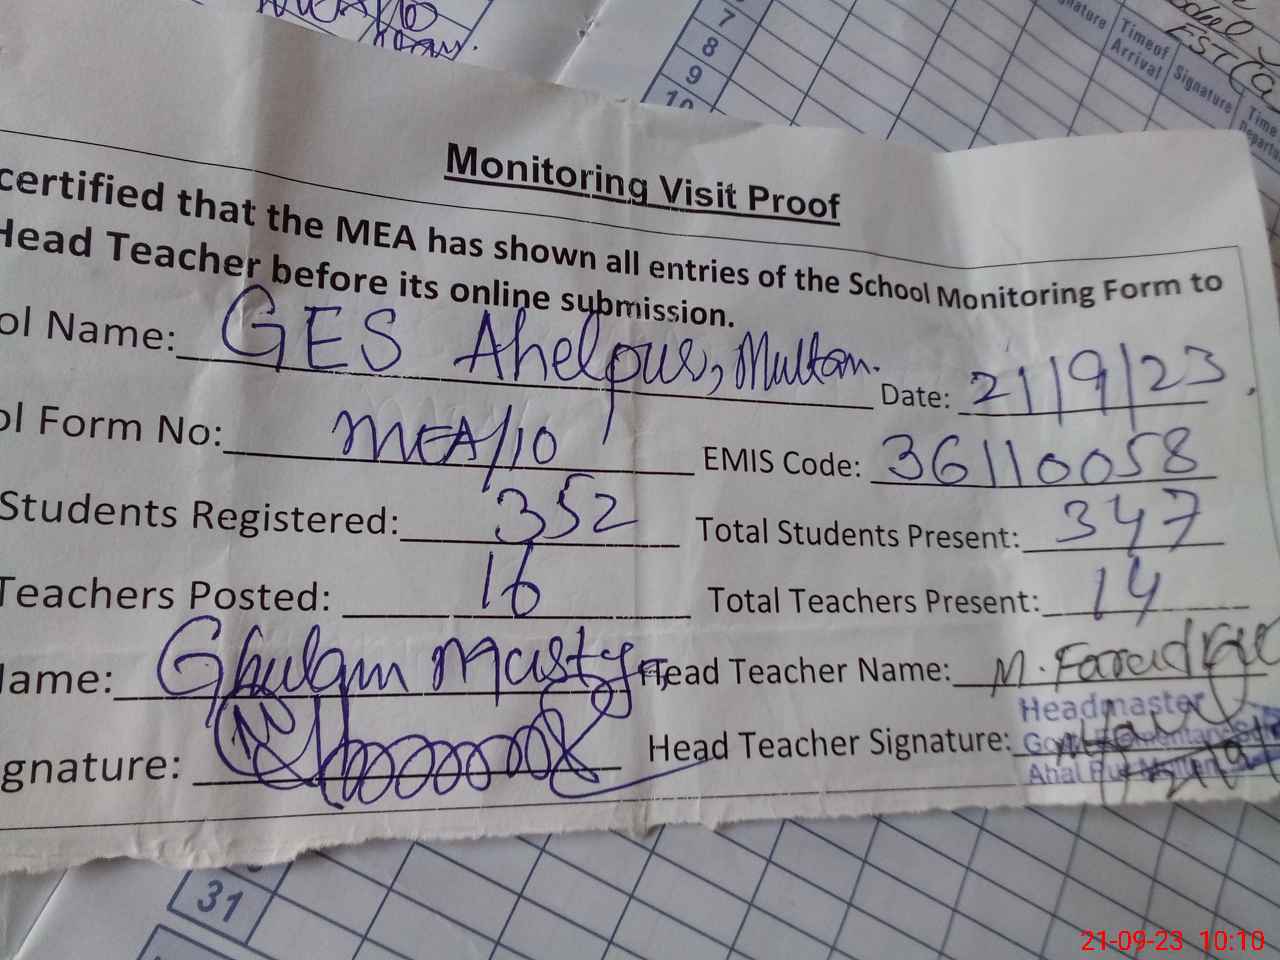 7
8
9
10
Timeof Arrival
Signature
Monitoring Visit Proof
certified that the MEA has shown all entries of the School Monitoring Form to
Head Teacher before its online submission.
ol Name: GES Ahelpur, Multan.
Date: 21/9/23
ol Form No: MEA/10
EMIS Code: 36110058
Students Registered: 352
Total Students Present: 347
Teachers Posted: 16
Total Teachers Present: 14
lame: Ghulam
Head Teacher Name: M.
gnature:
Head Teacher Signature:
Headmaster
31
21-09-23 10:10